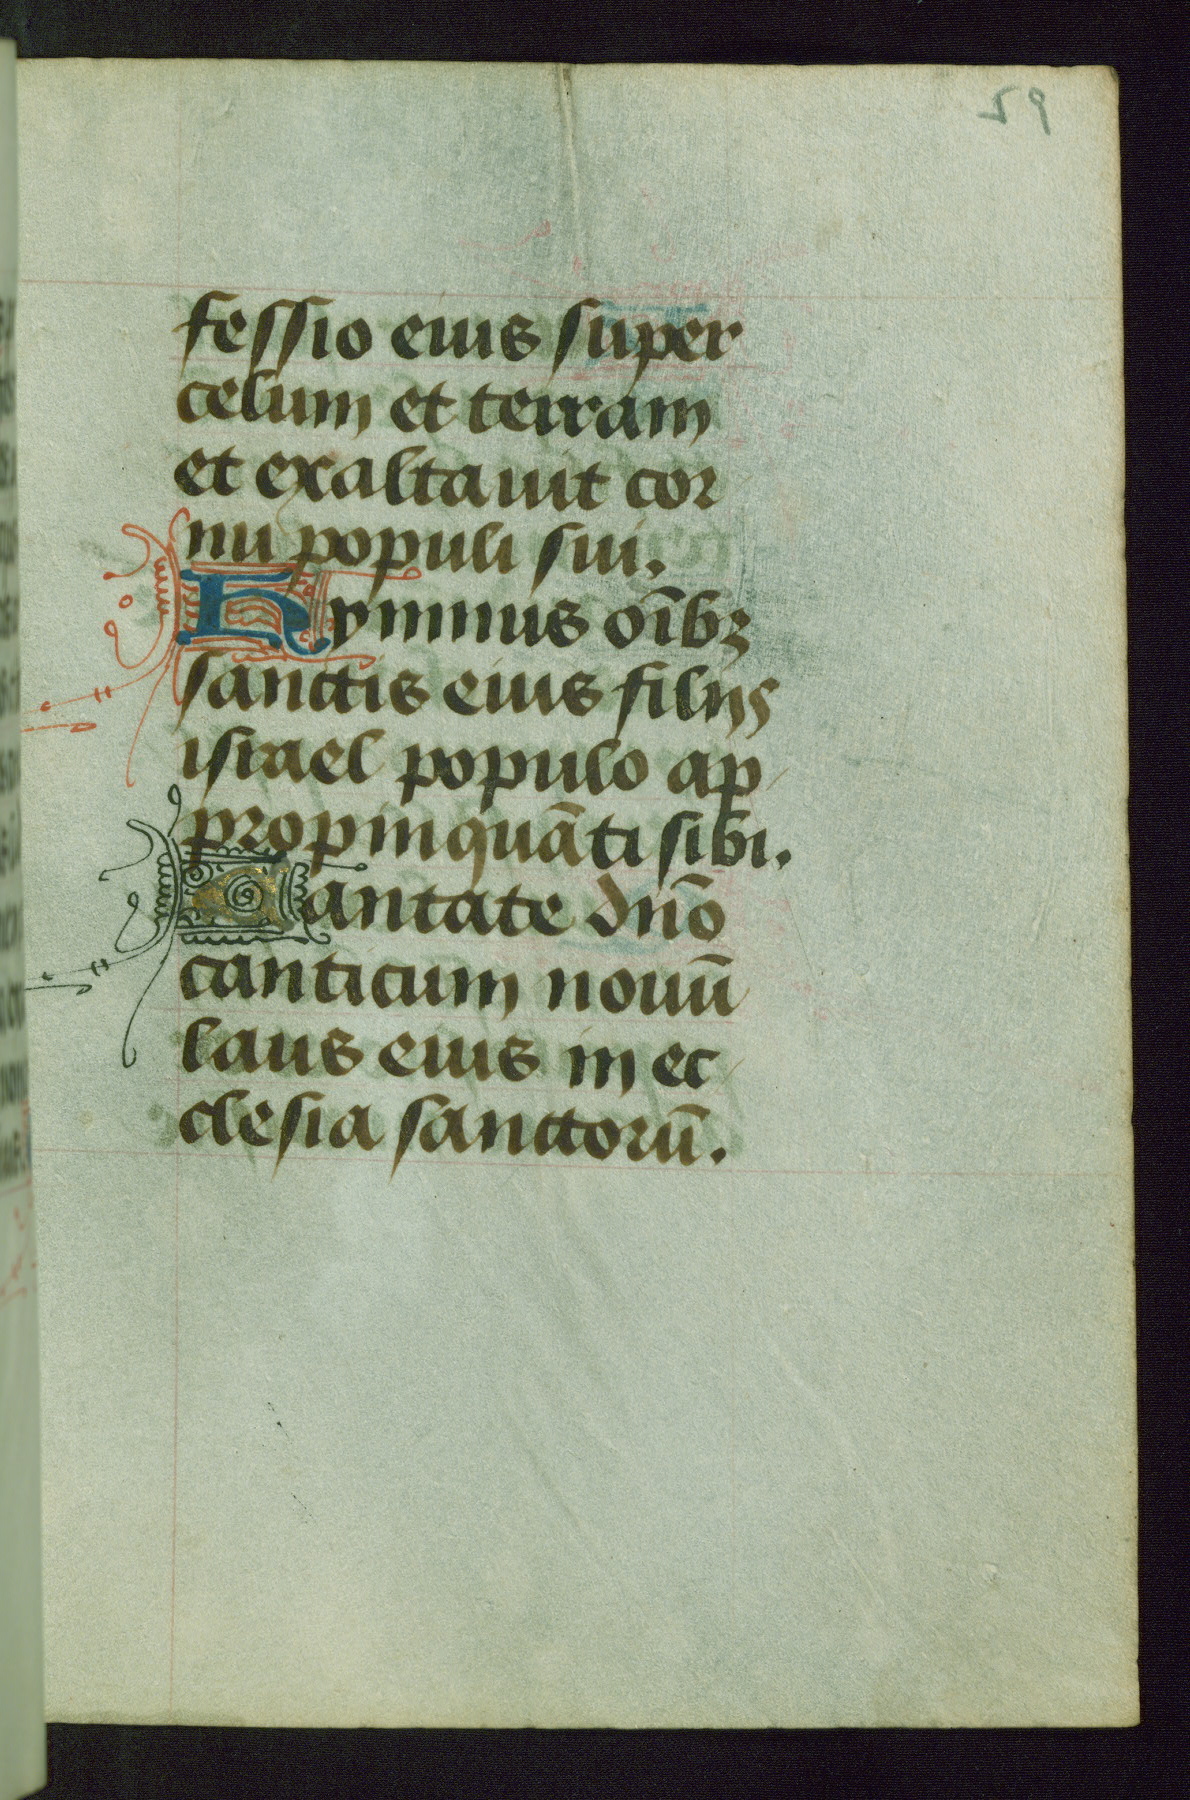 59
fessio eius super
celum et terram
et exaltauit cor
nu populi sui.
Hymnus oībꝫ
sanctis eius filijs
israel populo ap
propinquāti sibi.
Cantate dn̄o
canticum nouū
laus eius in ec
clesia sanctorū.